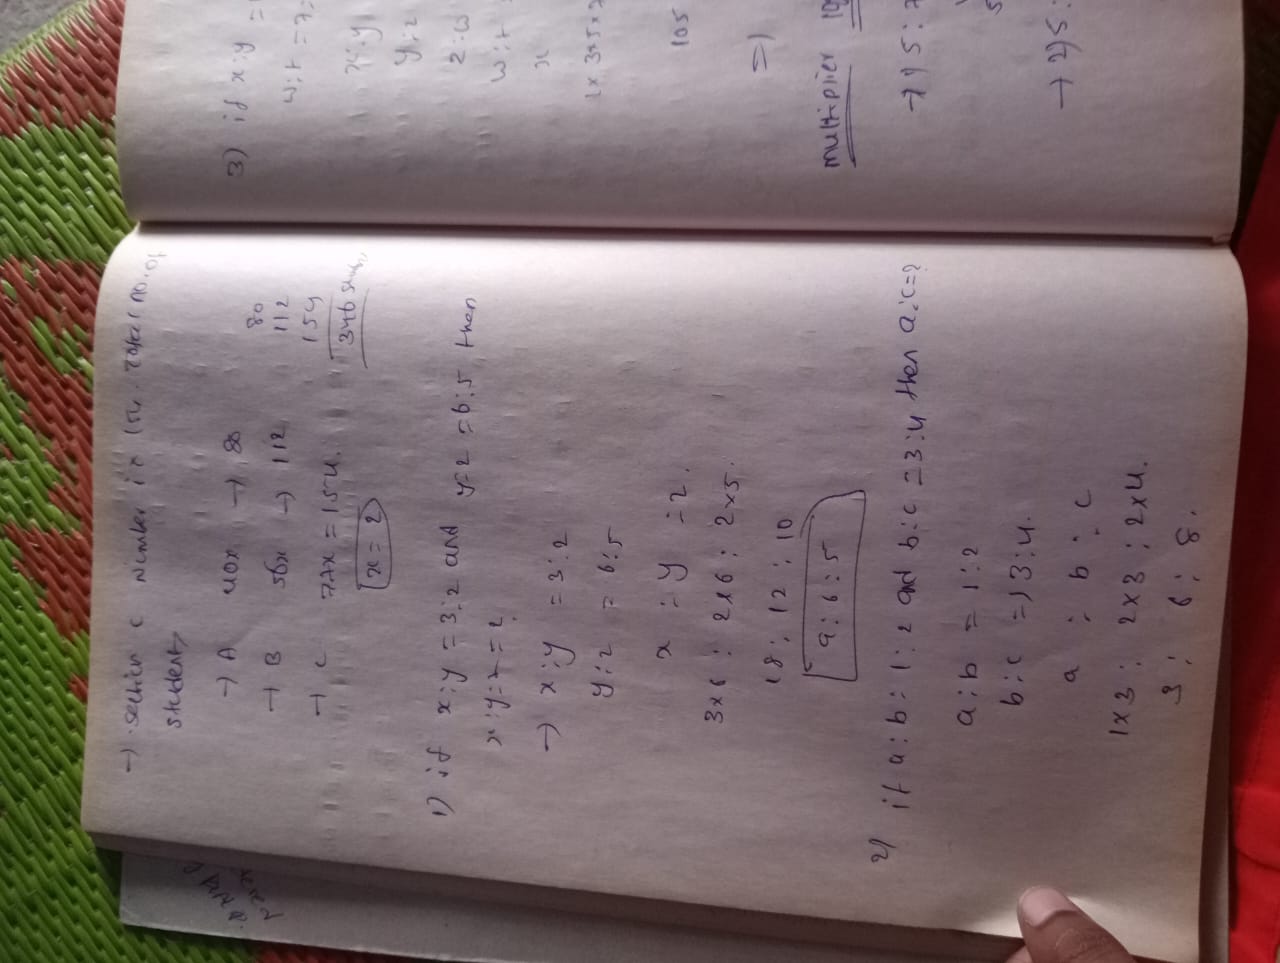 → section C number is 154. Total no. of
students
→ A 40x → 80
→ B 56x → 112
→ C 77x = 154.
x = 2
80
112
154
346
1) if x:y = 3:2 and y:z = 6:5 then
x:y:z = ?
→ x:y = 3:2
y:z = 6:5
x : y : z.
3x6 : 2x6 : 2x5.
18 : 12 : 10
9 : 6 : 5
2) if a:b = 1:2 and b:c = 3:4 then a:c=?
a:b = 1:2
b:c = 3:4.
a : b : c
1x3 : 2x3 : 2x4.
3 : 6 : 8.
3) if x:y =
w:t = 7:
x:y
y:z
z:w
w:t
x
105
=)
multiplier
→ 1) 5:7
→ 2) 5: